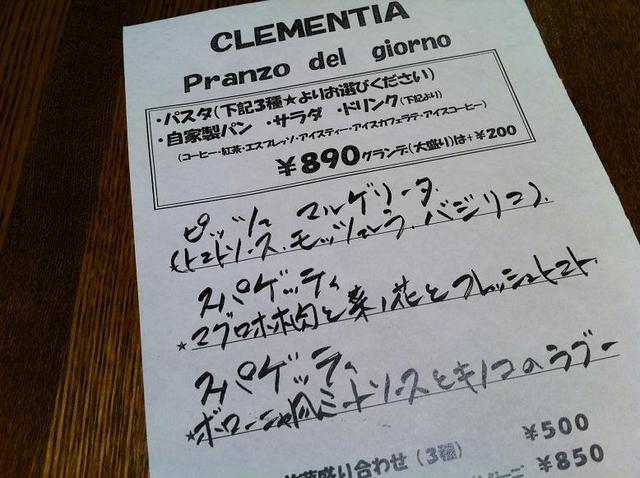 CLEMENTIA
Pranzo del giorno
・パスタ(下記3種★よりお選びください)
・自家製パン ・サラダ ・ドリンク(下記より)
(コーヒー・紅茶・エスプレッソ・アイスティー・アイスカフェラテ・アイスコーヒー)
￥890グランデ(大盛り)は+￥200
ピッツァ マルゲリータ
(トマトソース、モッツァレラ、バジリコ)
スパゲッティ
★マグロホホ肉と菜ノ花とフレッシュトマト
スパゲッティ
★ボローニャ風ミートソースとキノコのラグー
盛り合わせ(3種) ￥500
￥850